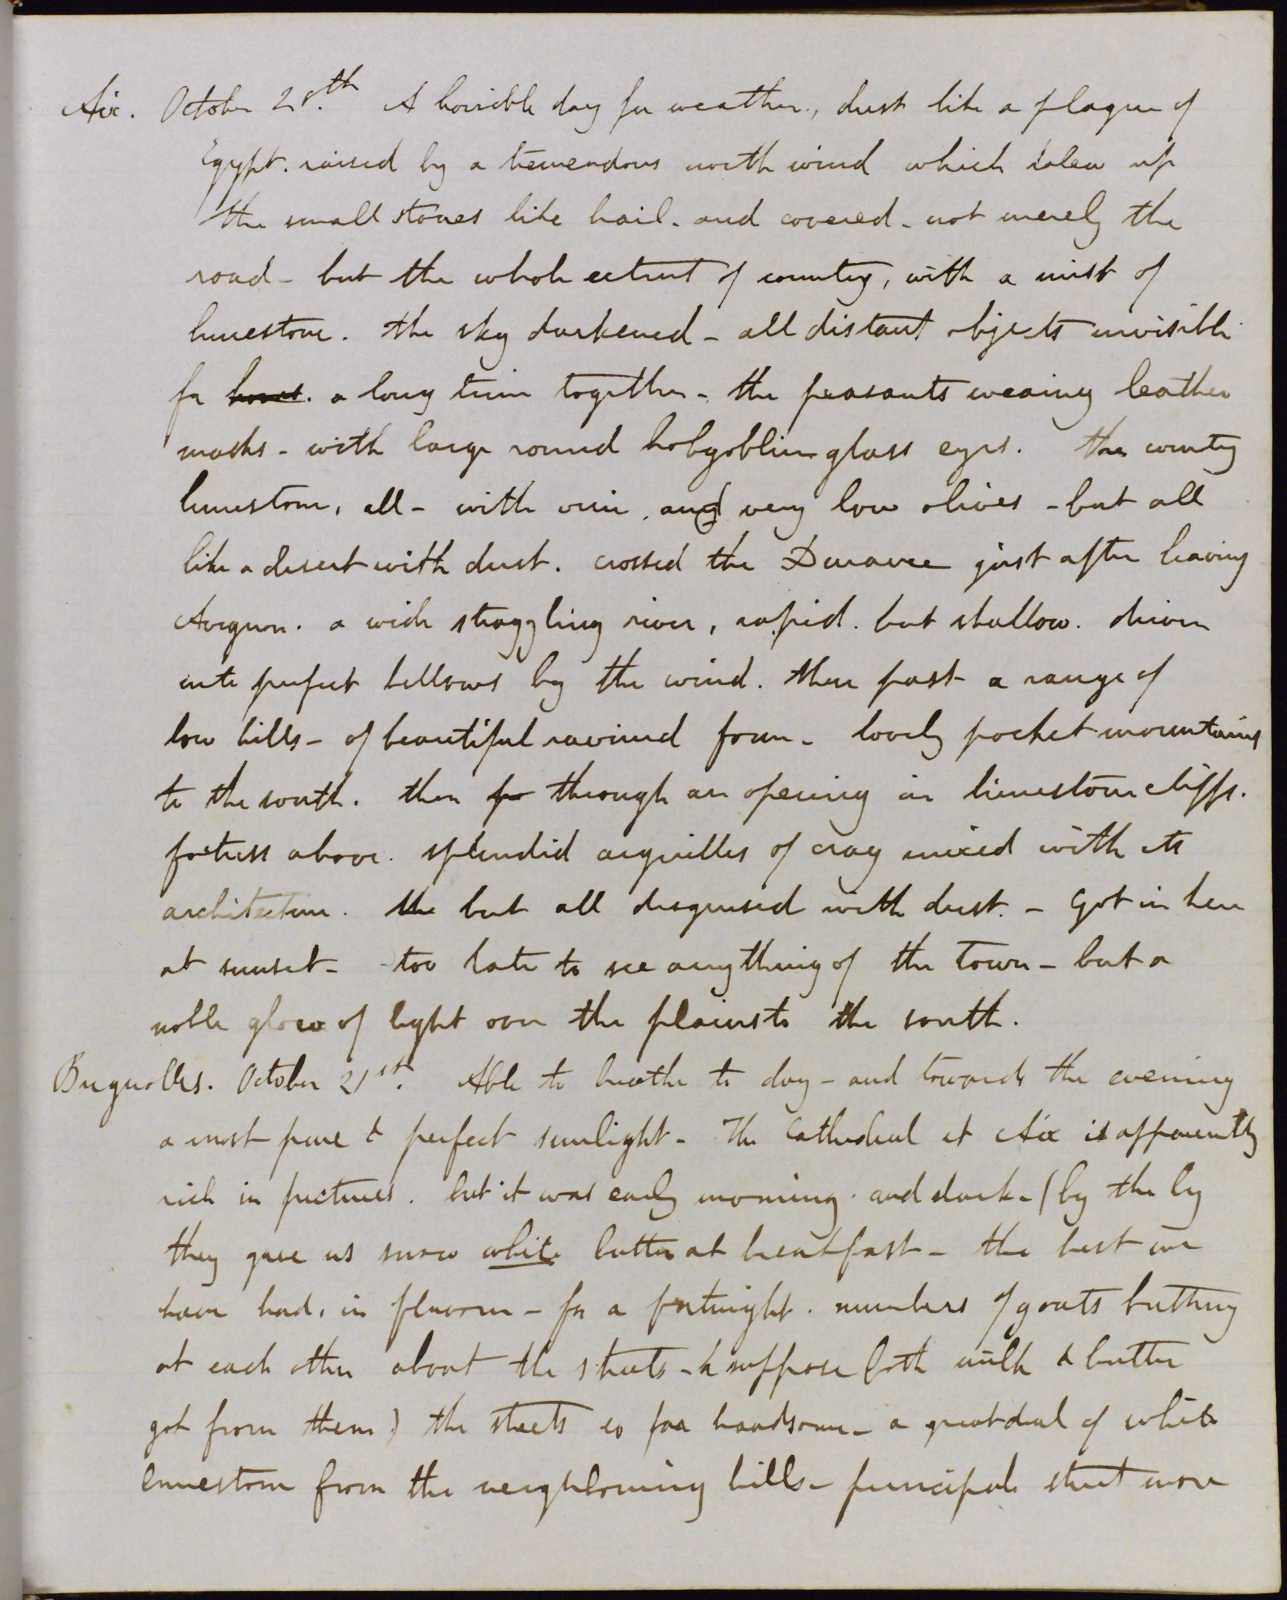 Aix. October 20.th A horrible day for weather, dust like a plague of
Egypt. raised by a tremendous north wind which blew up
the small stones like hail. and covered - not merely the
road - but the whole extent of country, with a mist of
limestone. the sky darkened - all distant objects invisible
for hours. a long time together - the peasants wearing leather
masks - with large round hobgoblin glass eyes. the country
limestone, all - with vine and very low olives - but all
like a desert with dust. crossed the Durance just after leaving
Avignon. a wide straggling river, rapid. but shallow. driven
into perfect billows by the wind. then past a range of
low hills - of beautiful ravined form - lovely pocket mountains
to the south. then through an opening in limestone cliffs.
fortress above. splendid aiguilles of crag mixed with its
architecture. the but all disguised with dust. - Got in here
at sunset - too late to see anything of the town - but a
noble glow of light over the plains to the south.
Brignolles. October 21st. Able to breathe to day - and towards the evening
a most pure & perfect sunlight - The Cathedral at Aix is apparently
rich in pictures. but it was early morning. and dark - (by the by
they gave us snow white butter at breakfast - the best we
have had, in flavour - for a fortnight. numbers of goats butting
at each other about the streets - I suppose both milk & butter
got from them) the streets so far handsome - a great deal of white
limestone from the neighbouring hills - principal street more